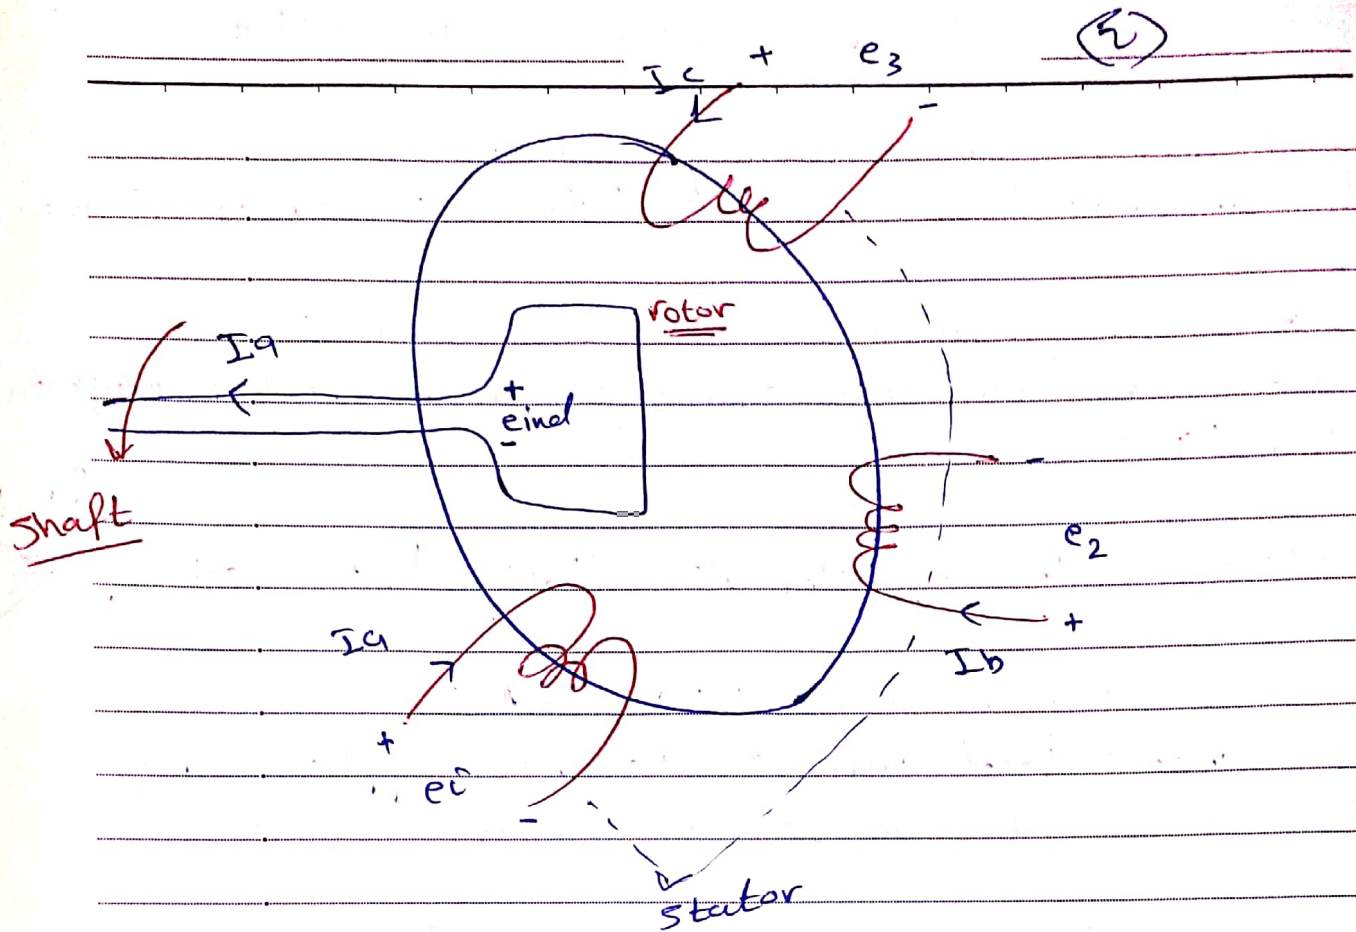 + e3
Ic
-
rotor
Ia
+
eind
-
shaft
-
e2
+
Ia
Ib
+
ei
-
stator